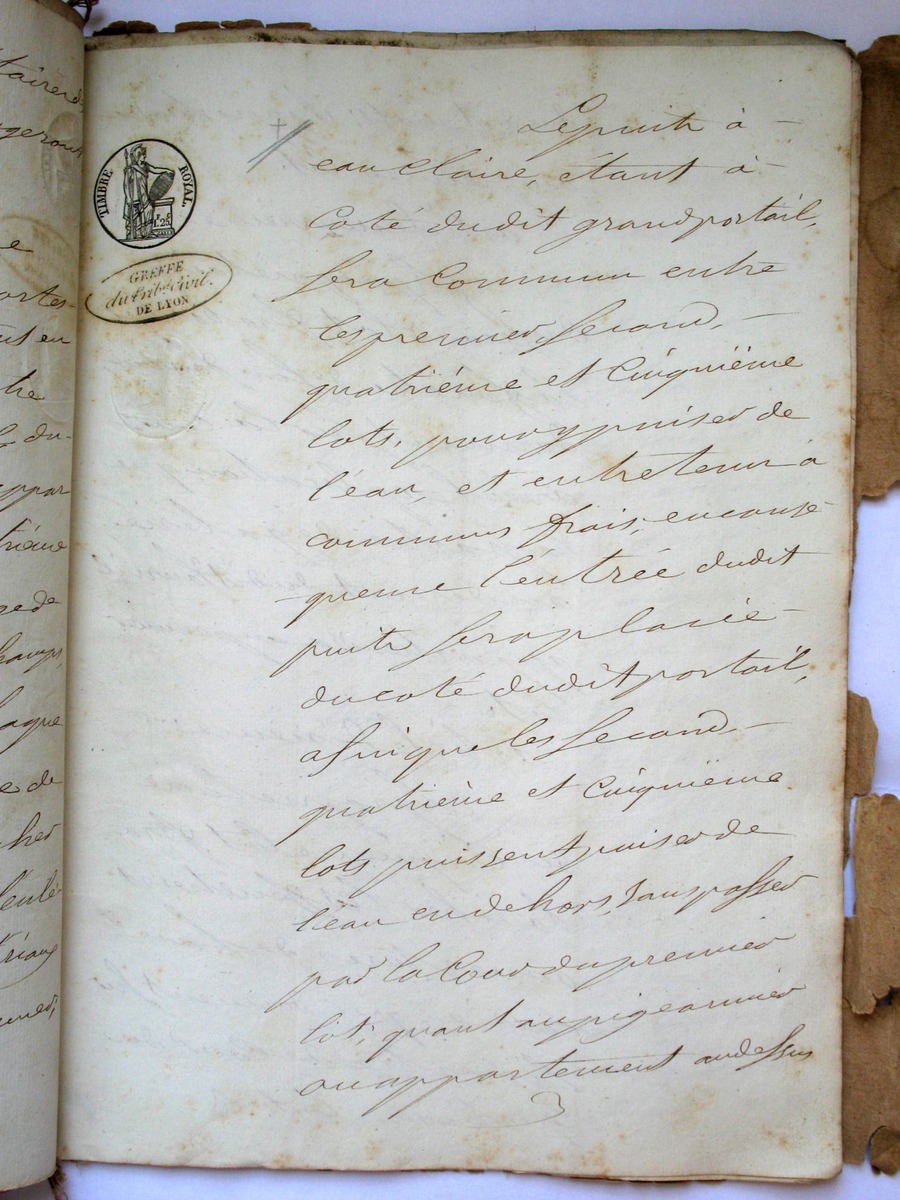 TIMBRE ROYAL.
1.F 25c
GREFFE
du trib.al civil.
DE LYON
Le puits à
eau claire, étant à
Coté dudit grand portail,
Sera Commun entre
les premier, Second,
quatriéme et Cinquiëme
lots, pour y puiser de
l'eau, et entretenir à
communs frais, en consé
quence l'entrée dudit
puits Sera placée
du coté dudit portail,
afin que les Second
quatrième et Cinquiëme
lots puissent puiser de
l'eau en dehors, Sans passer
par la Cour du premier
lot; quant au pigeonnier
ou appartement au dessus
taire d
geront
e
ortes
nt en
che
du
appar
trième
ge de
hamps
laque
e de
cher